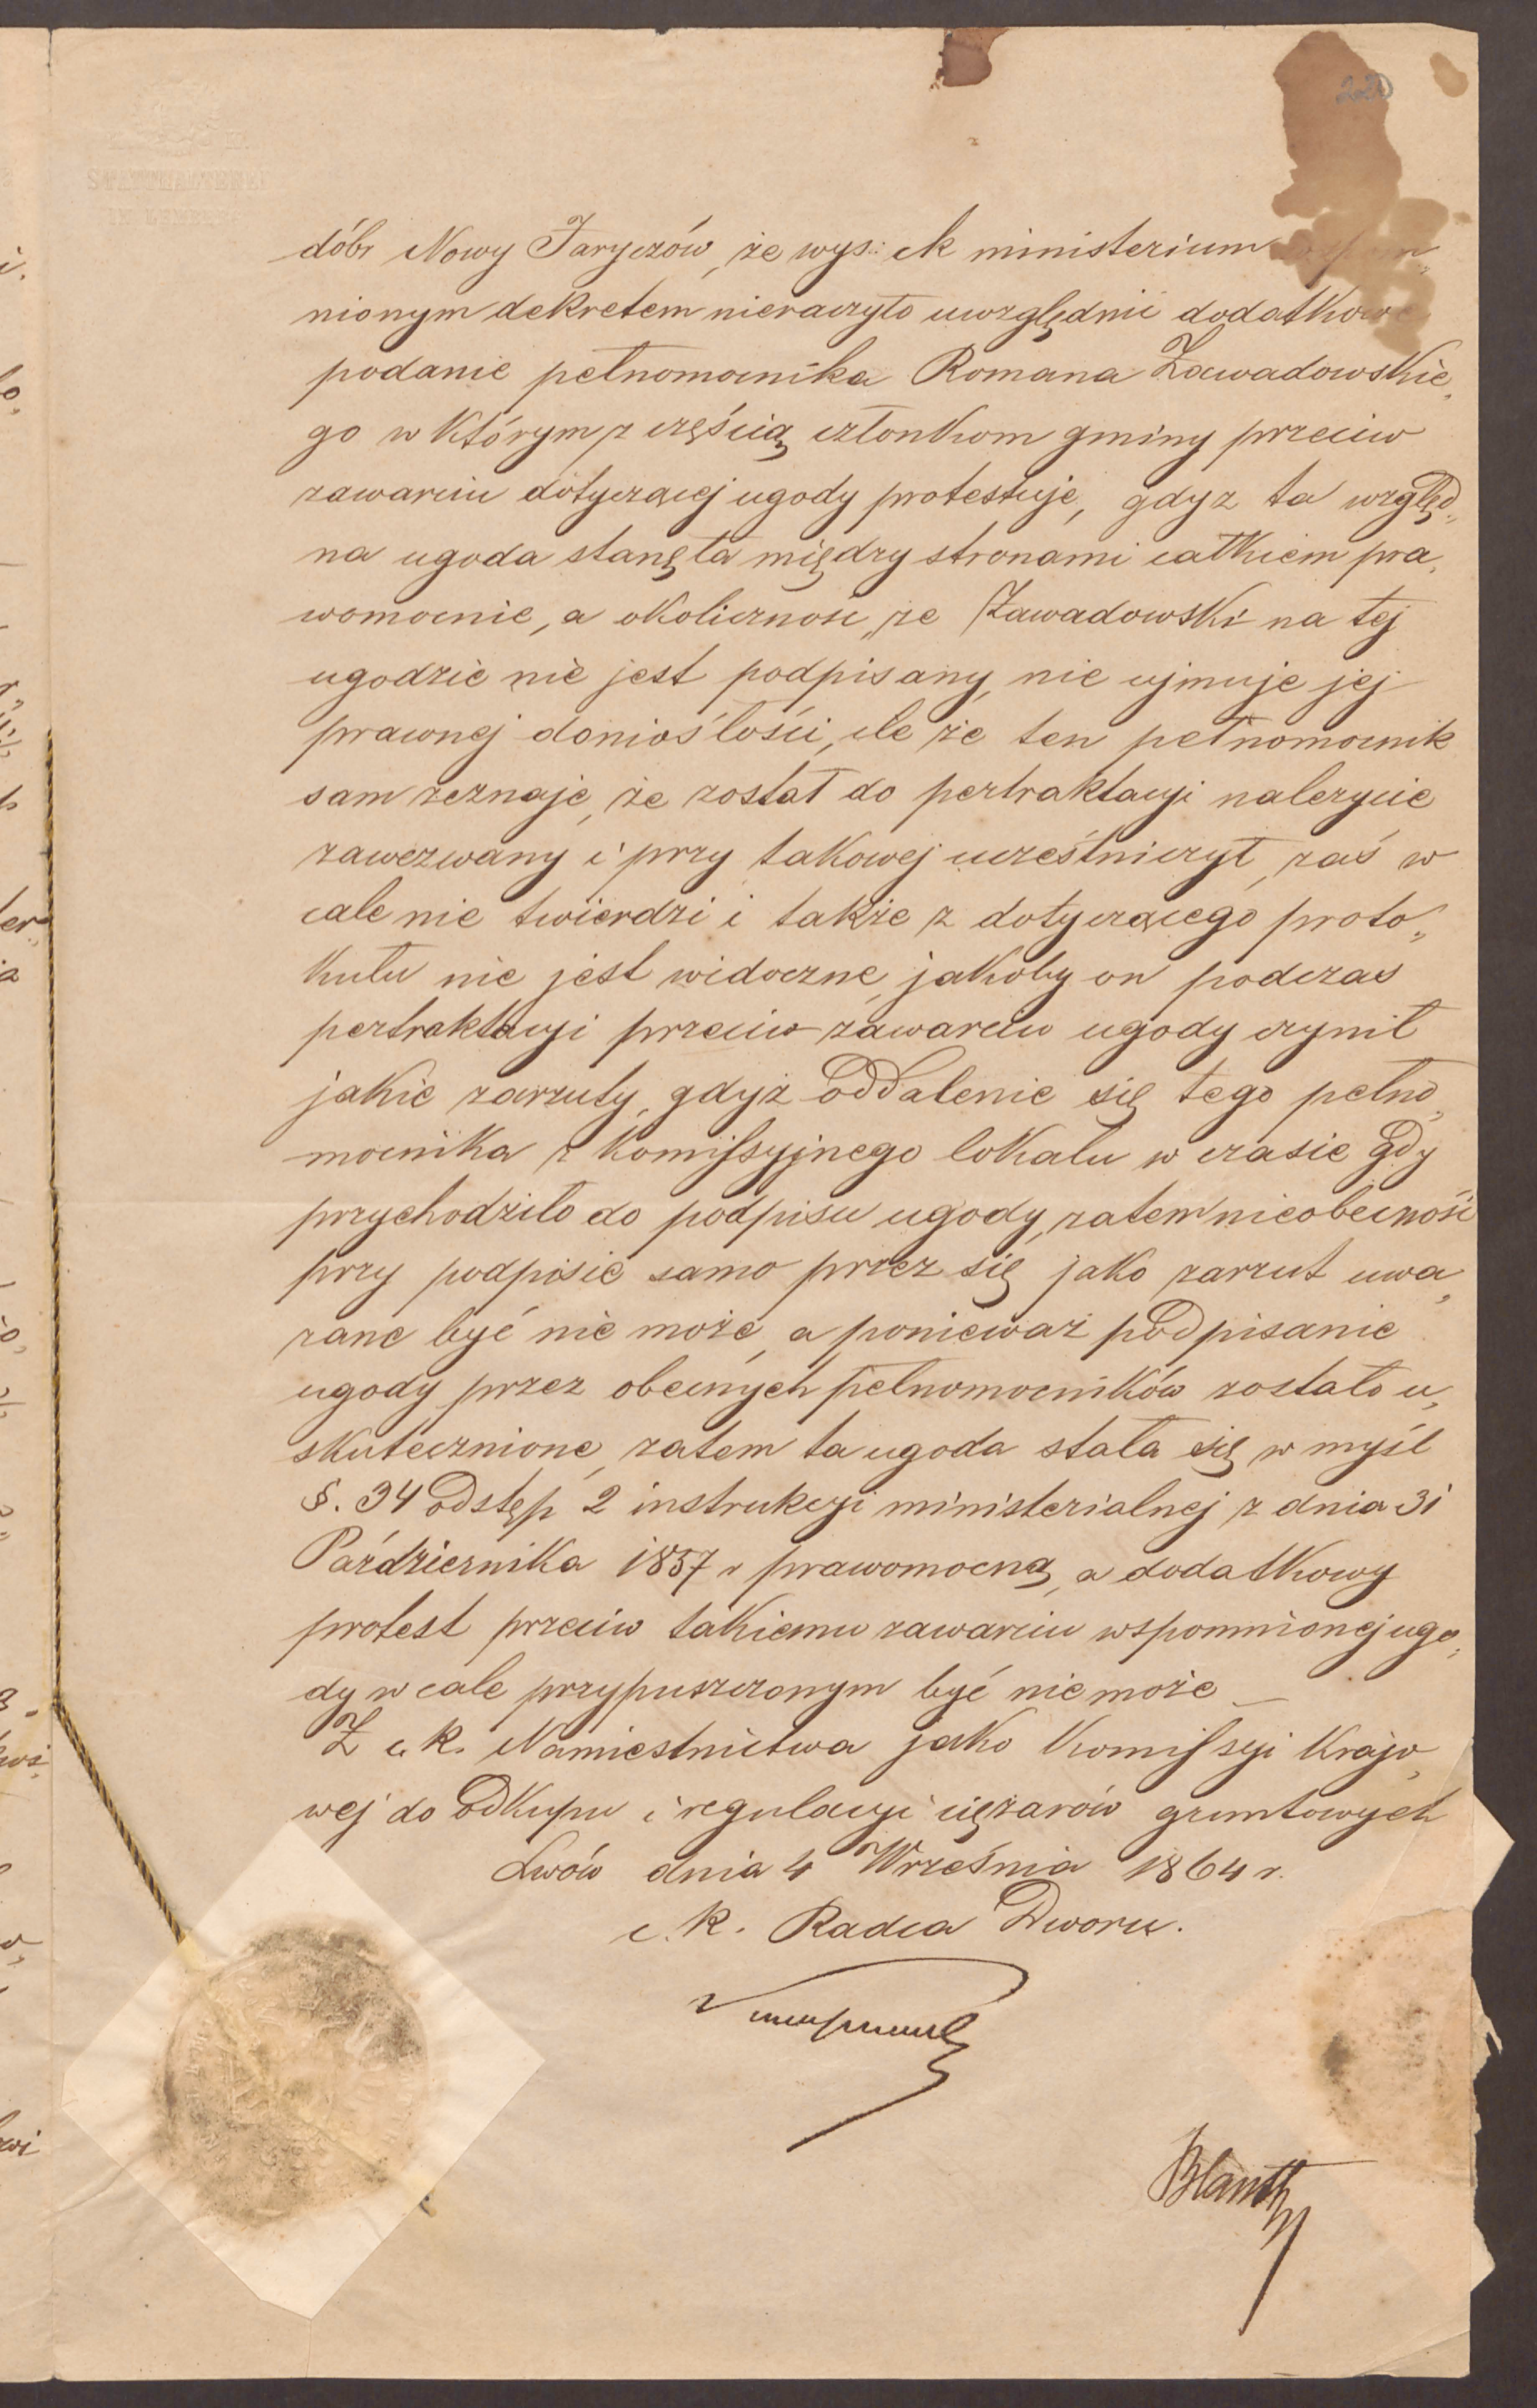 220
STATTHALTEREI
IN LEMBERG
dóbr Nowy Jaryczów, że wys: ck ministerium wspom„
nionym dekretem nieraczyło uwzględnić dodatkowe
podanie pełnomocnika Romana Zawadowskie„
go w którym z częścią członkom gminy przeciw
zawarciu dotyczącej ugody protestuje, gdyz ta względ„
na ugoda stanęła między stronami całkiem pra„
womocnie, a okoliczność, że Zawadowski na tej
ugodzie nie jest podpisany, nie ujmuje jej
prawnej doniosłości, ile że ten pełnomocnik
sam zeznaje, że został do pertraktacyi należycie
zawezwany i przy takowej uczestniczył, zaś w
cale nie twierdzi i także z dotyczącego proto„
kułu nie jest widoczne, jakoby on podczas
pertraktacyi przeciw zawarciu ugody czynił
jakie zarzuty, gdyż oddalenie się tego pełno„
mocnika z komissyjnego lokalu w czasie gdy
przychodziło do podpisu ugody, zatem nieobecność
przy podpisie samo przez się jako zarzut uwa„
zane być nie może, a ponieważ podpisanie
ugody przez obecnych pełnomocników zostało u„
skutecznione, zatem ta ugoda stała się w myśl
§. 34 odstęp 2 instrukcyi ministerialnej z dnia 31
Października 1857 r prawomocną, a dodatkowy
protest przeciw takiemu zawarciu wspomnionej ugo„
dy w cale przypuszczonym być nie może _
Z c. k. Namiestnictwa jako Komissyi Krajo„
wej do odkupu i regulacyi ciężarów gruntowych
Lwów dnia 4 Września 1864 r.
c. k. Radca Dworu.